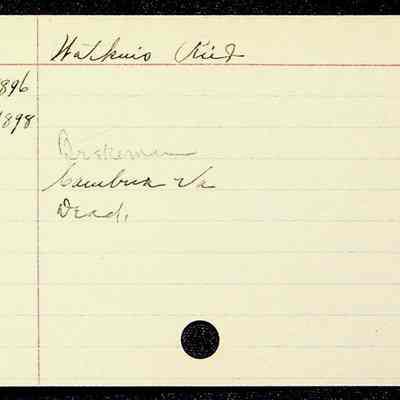 Watkins Reid
896
1898
Brakeman
Cambria Va
Dead.